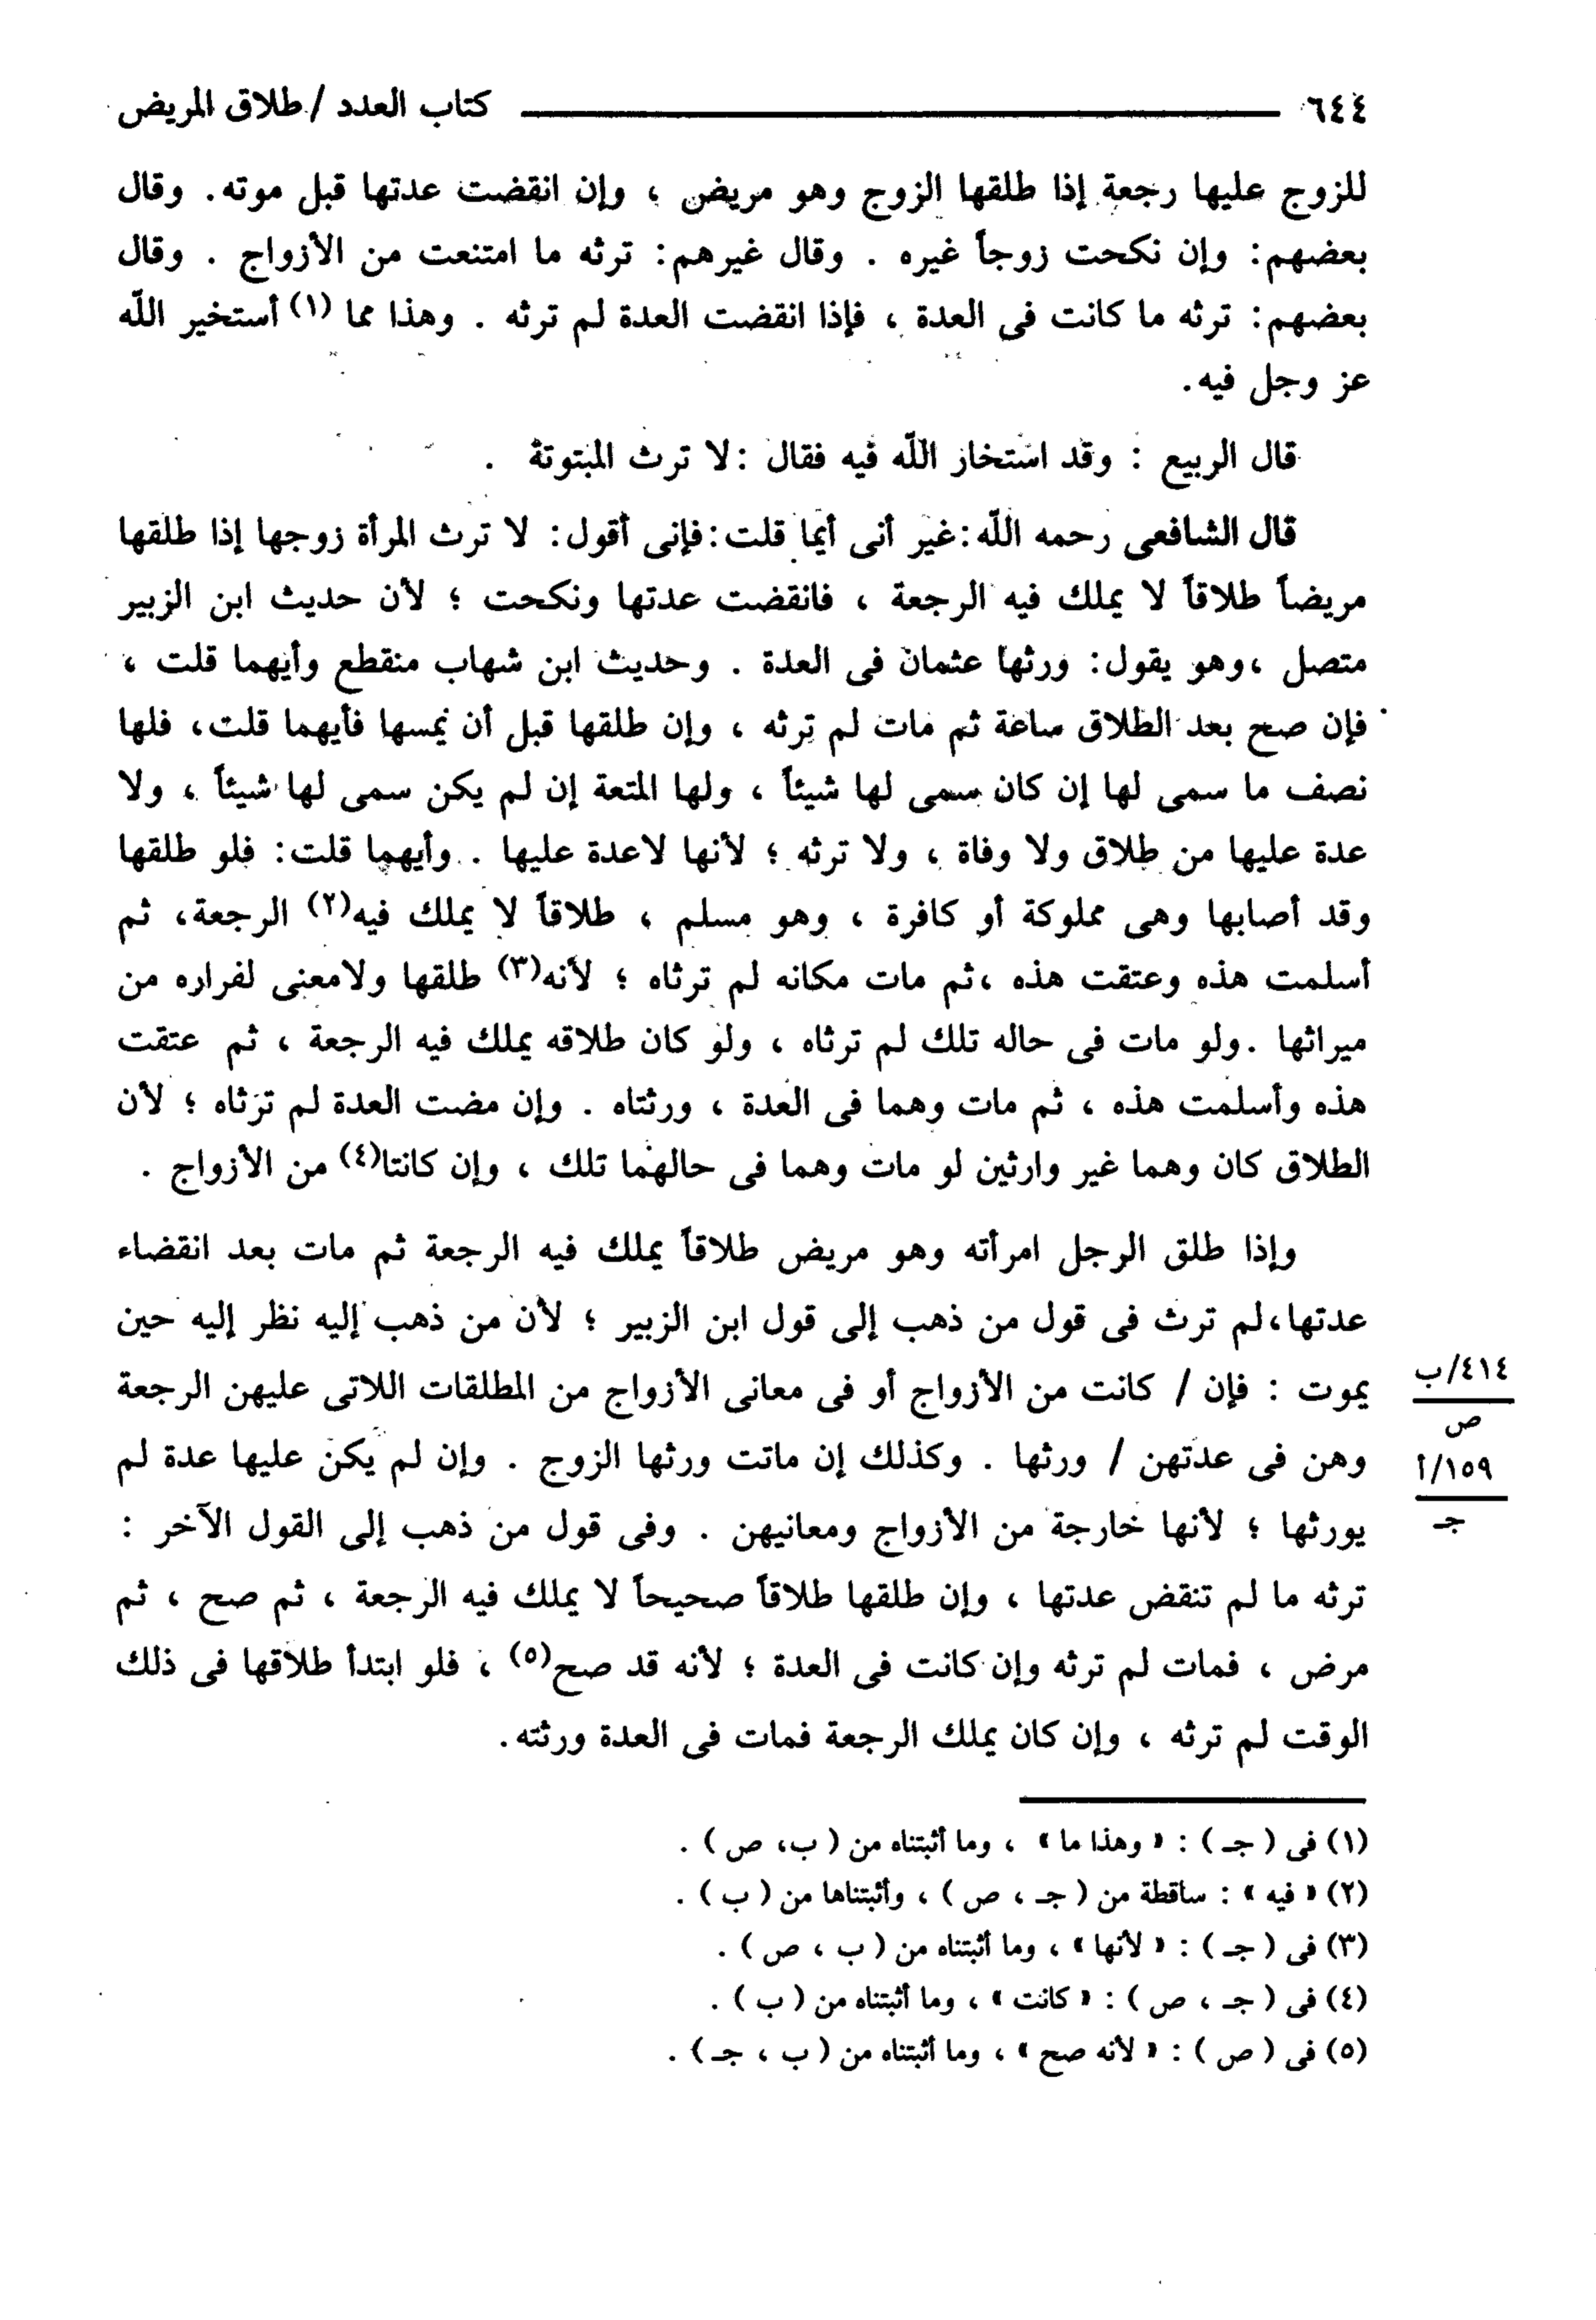 ٦٤٤ كتاب العدد / طلاق المريض
للزوج عليها رجعة إذا طلقها الزوج وهو مريض ، وإن انقضت عدتها قبل موته . وقال
بعضهم : وإن نكحت زوجاً غيره . وقال غيرهم : ترثه ما امتنعت من الأزواج . وقال
بعضهم : ترثه ما كانت فى العدة ، فإذا انقضت العدة لم ترثه . وهذا مما (١) أستخير اللّه
عز وجل فيه .
قال الربيع : وقد استخار اللّه فيه فقال : لا ترث المبتوتة .
قال الشافعى رحمه اللّه : غير أنى أيما قلت : فإنى أقول : لا ترث المرأة زوجها إذا طلقها
مريضاً طلاقاً لا يملك فيه الرجعة ، فانقضت عدتها ونكحت ؛ لأن حديث ابن الزبير
متصل ، وهو يقول : ورثها عثمان فى العدة . وحديث ابن شهاب منقطع وأيهما قلت ،
فإن صح بعد الطلاق ساعة ثم مات لم ترثه ، وإن طلقها قبل أن يمسها فأيهما قلت ، فلها
نصف ما سمى لها إن كان سمى لها شيئاً ، ولها المتعة إن لم يكن سمى لها شيئاً ، ولا
عدة عليها من طلاق ولا وفاة ، ولا ترثه ؛ لأنها لاعدة عليها . وأيهما قلت : فلو طلقها
وقد أصابها وهى مملوكة أو كافرة ، وهو مسلم ، طلاقاً لا يملك فيه(٢) الرجعة ، ثم
أسلمت هذه وعتقت هذه ، ثم مات مكانه لم ترثاه ؛ لأنه(٣) طلقها ولامعنى لفراره من
ميراثها . ولو مات فى حاله تلك لم ترثاه ، ولو كان طلاقه يملك فيه الرجعة ، ثم عتقت
هذه وأسلمت هذه ، ثم مات وهما فى العدة ، ورثتاه . وإن مضت العدة لم ترثاه ؛ لأن
الطلاق كان وهما غير وارثين لو مات وهما فى حالهما تلك ، وإن كانتا(٤) من الأزواج .
وإذا طلق الرجل امرأته وهو مريض طلاقاً يملك فيه الرجعة ثم مات بعد انقضاء
عدتها ، لم ترث فى قول من ذهب إلى قول ابن الزبير ؛ لأن من ذهب إليه نظر إليه حين
يموت : فإن / كانت من الأزواج أو فى معانى الأزواج من المطلقات اللاتى عليهن الرجعة
٤١٤/ب
ص
وهن فى عدتهن / ورثها . وكذلك إن ماتت ورثها الزوج . وإن لم يكن عليها عدة لم
١٥٩/أ
جـ
يورثها ؛ لأنها خارجة من الأزواج ومعانيهن . وفى قول من ذهب إلى القول الآخر :
ترثه ما لم تنقض عدتها ، وإن طلقها طلاقاً صحيحاً لا يملك فيه الرجعة ، ثم صح ، ثم
مرض ، فمات لم ترثه وإن كانت فى العدة ؛ لأنه قد صح(٥) ، فلو ابتدأ طلاقها فى ذلك
الوقت لم ترثه ، وإن كان يملك الرجعة فمات فى العدة ورثته .
(١) فى ( جـ ) : « وهذا ما » ، وما أثبتناه من ( ب ، ص ) .
(٢) « فيه » : ساقطة من ( جـ ، ص ) ، وأثبتناها من ( ب ) .
(٣) فى ( جـ ) : « لأنها » ، وما أثبتناه من ( ب ، ص ) .
(٤) فى ( جـ ، ص ) : « كانت » ، وما أثبتناه من ( ب ) .
(٥) فى ( ص ) : « لأنه صح » ، وما أثبتناه من ( ب ، جـ ) .